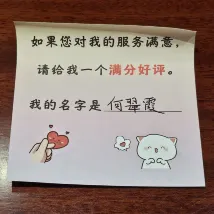 如果您对我的服务满意，
请给我一个满分好评。
我的名字是 何翠霞